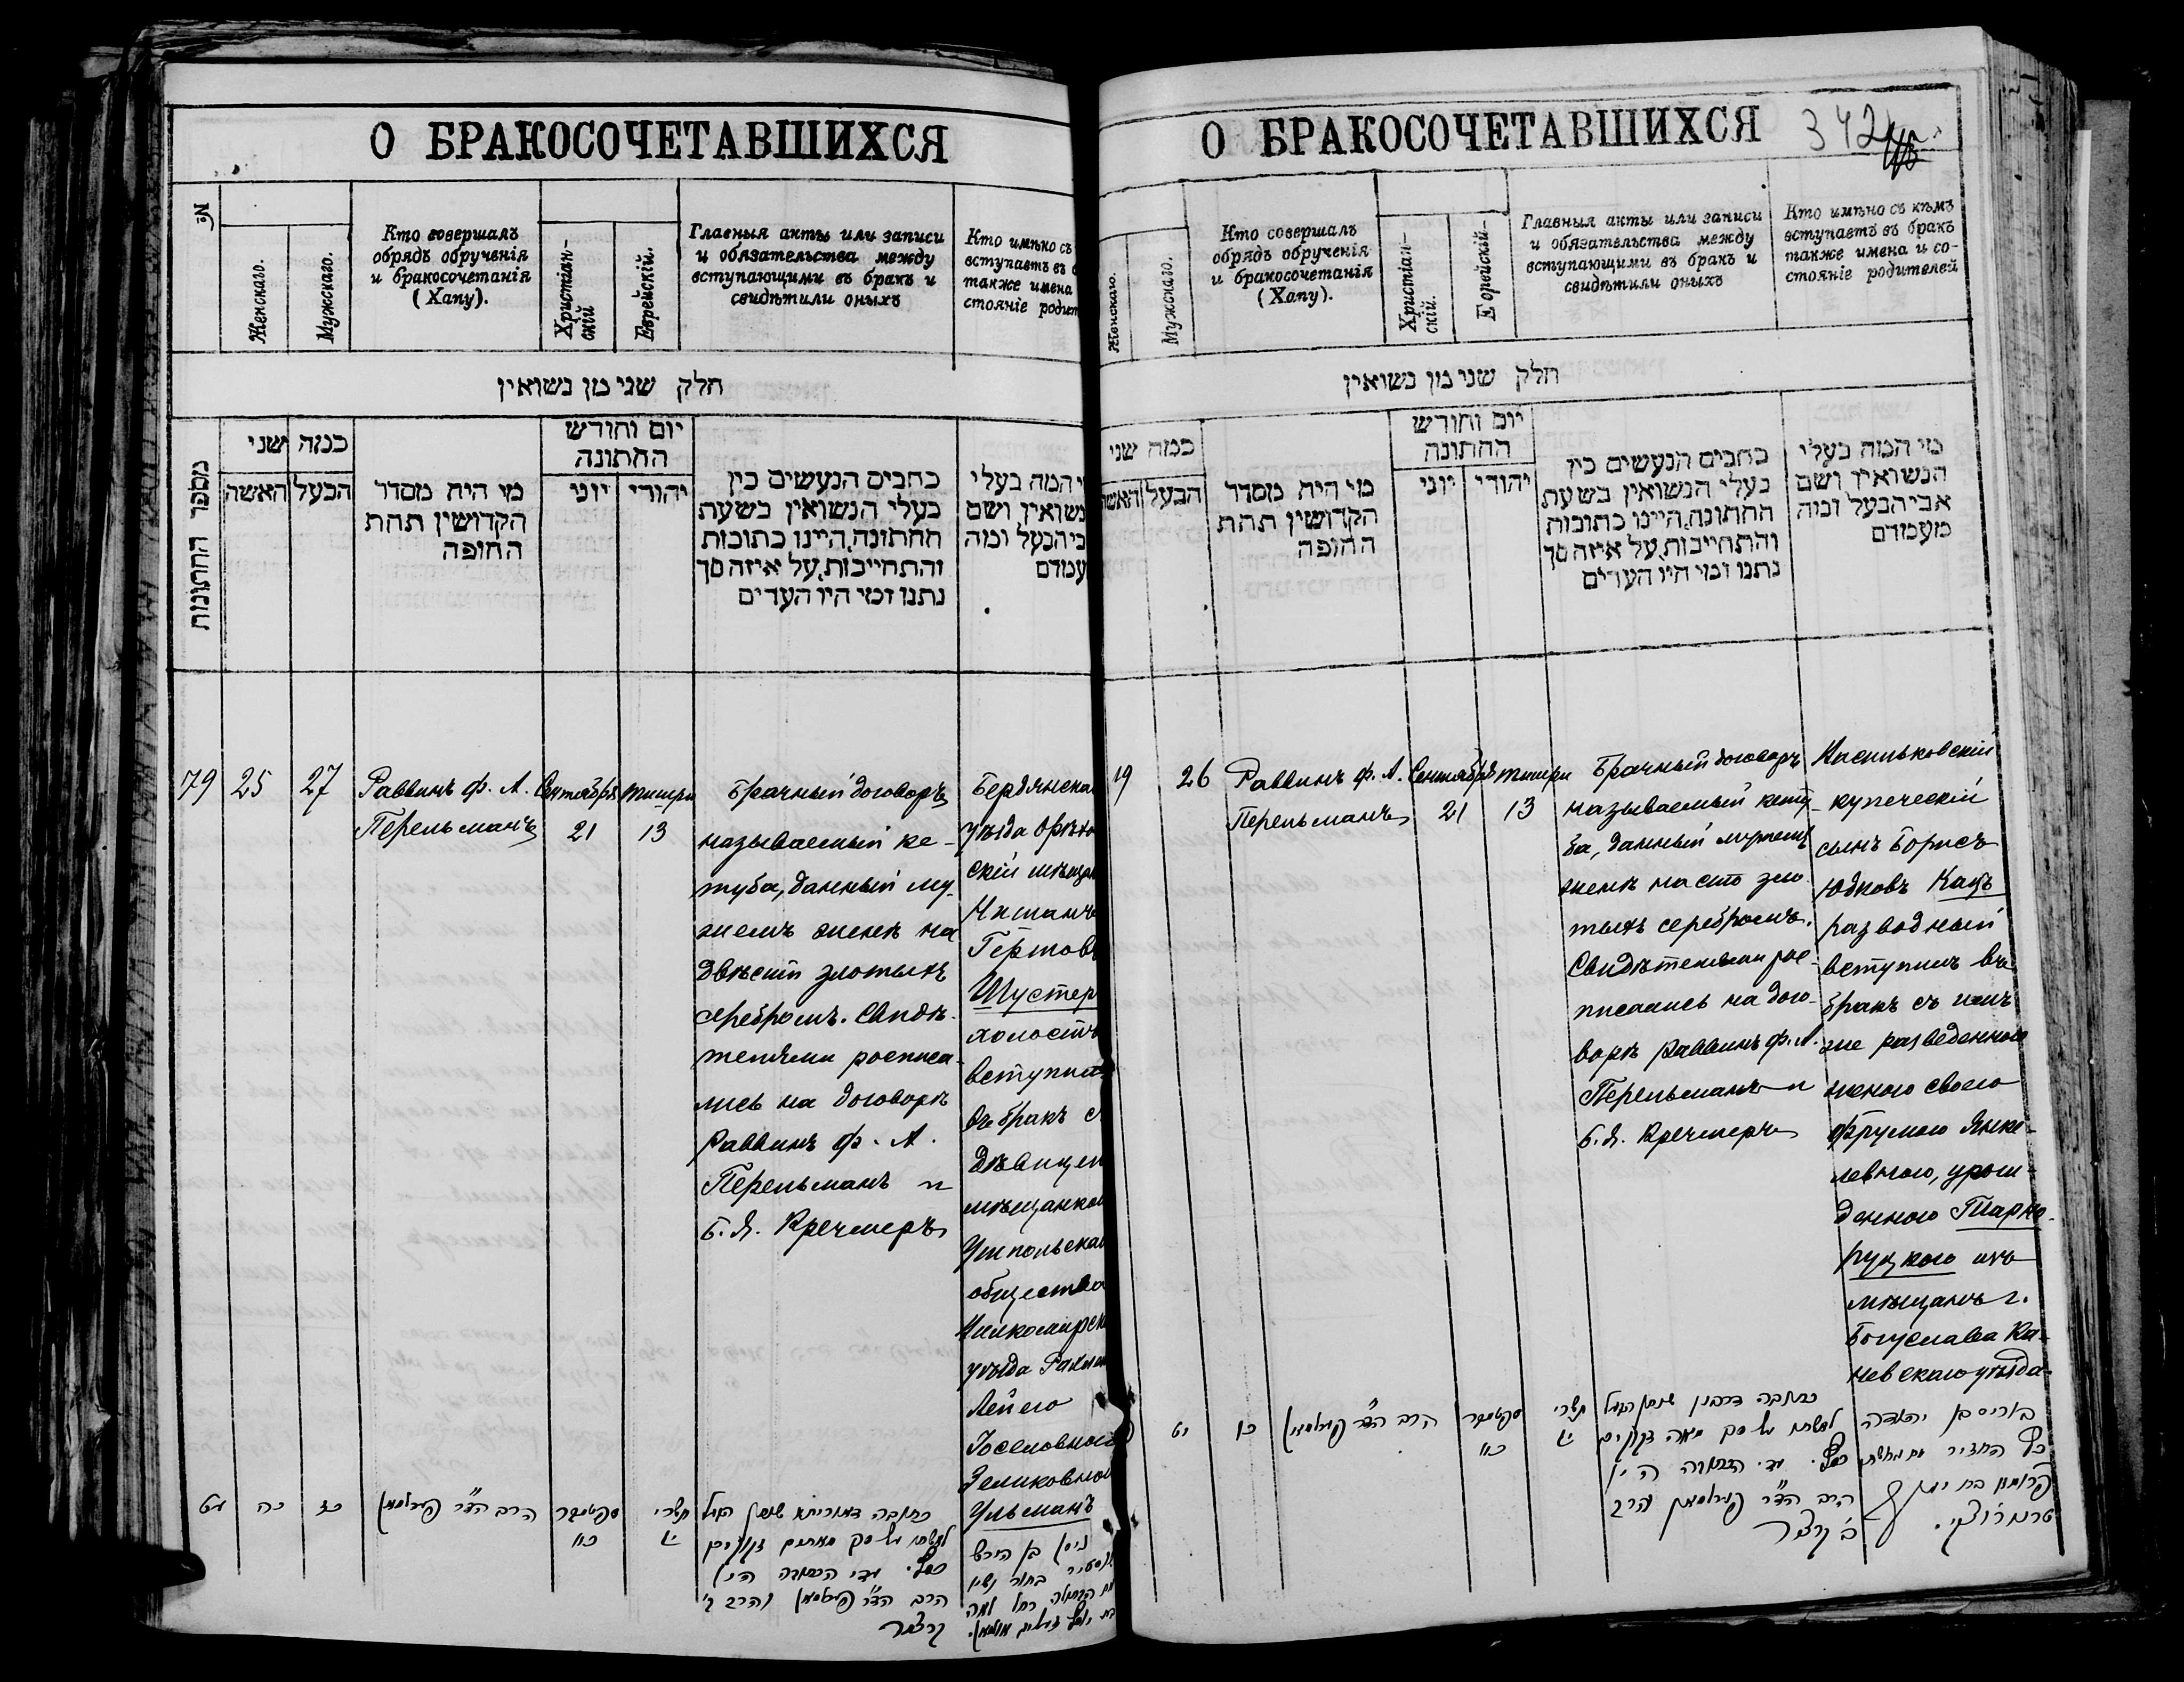 О БРАКОСОЧЕТАВШИХСЯ
№
Женскаго.
Мужскаго.
Кто совершалъ
обрядъ обрученія
и бракосочетанія
(Хапу).
Христіан-
скій
Еврейскій.
Главныя акты или записи
и обязательства между
вступающими въ бракъ и
свидѣтили оныхъ
Кто имѣно съ
вступаетъ въ
также имена
стояніе родит
חלק שני מן נשואין
מספר החתונות
כמה שני
האשה
הבעל
מי היה מסדר
הקדושין תחת
החופה
יום וחודש
החתונה
יוני
יהודי
כתבים הנעשים בין
בעלי הנשואין בשעת
החתונה, היינו כתובות
והתחייבות, על איזה סך
נתנו ומי היו העדים
י המה בעלי
נשואין ושם
בי הבעל ומה
עמדם
79
25
27
Раввинъ Ф. А.
Перельманъ
Сентября
21
Тишри
13
Брачный договоръ
называемый ке-
туба, данный му-
жемъ женѣ на
двѣсти злотыхъ
серебромъ. Свидѣ-
телями росписа-
лись на договорѣ
Раввинъ Ф. А.
Перельманъ и
Б. Я. Кречмеръ
Бердянска
уѣзда Орѣхо
скій мѣщан
Нисанъ
Гертов
Шустер
холостъ
вступилъ
въ бракъ с
дѣвицею
мѣщанкою
Ушпольскаго
общества
Вилкомирск
уѣзда
Лейею
Іоселовною
Зеликовною
Ульманъ
עט
כה
כז
הרב הד״ר פערלמאן
סקטמבר
כא
תשרי
כתובה דאורייתא
לאשתו על סך מאתים זקוקים
כסף. עדי הכתובה היו
הרב הד״ר פערלמאן והרב ב׳
קרצמר
ניסן בן הירש
О БРАКОСОЧЕТАВШИХСЯ
342
Женскаго.
Мужскаго.
Кто совершалъ
обрядъ обрученія
и бракосочетанія
(Хапу).
Христіан-
скій.
Еврейскій-
Главныя акты или записи
и обязательства между
вступающими въ бракъ и
свидѣтили оныхъ
Кто имѣно съ кѣмъ
вступаетъ въ бракъ
также имена и со-
стояніе родителей
חלק שני מן נשואין
כמה שני
האשה
הבעל
מי היה מסדר
הקדושין תחת
החופה
יום וחודש
החתונה
יוני
יהודי
כתבים הנעשים בין
בעלי הנשואין בשעת
החתונה, היינו כתובות
והתחייבות, על איזה סך
נתנו ומי היו העדים
מי המה בעלי
הנשואין ושם
אבי הבעל ומה
מעמדם
19
26
Раввинъ Ф. А.
Перельманъ
Сентября
21
Тишри
13
Брачный договоръ
называемый кету-
ба, данный мужемъ
женѣ на сто зло-
тыхъ серебромъ.
Свидѣтелями рос-
писались на дого-
ворѣ Раввинъ Ф. А.
Перельманъ и
Б. Я. Кречмеръ
купеческій
сынъ Борисъ
Юдковъ Кацъ
разводный
вступилъ въ
бракъ съ имъ
же разведенною
женою своею
Фрумою Янке-
левною, урож-
денною Тарно-
руцкою изъ
мѣщанъ г.
Богуслава Ка-
невскаго уѣзда.
יט
כו
הרב הד״ר פערלמאן
סקטמבר
כא
תשרי
כתובה דרבנן
לאשתו על סך מאה זקוקים
כסף. עדי הכתובה היו
הרב הד״ר פערלמאן והרב
ב׳ קרצמר
בוריס בן יהודה
כץ החזיר את אשתו
פרומא בת יענקל
טרנארוצקי.